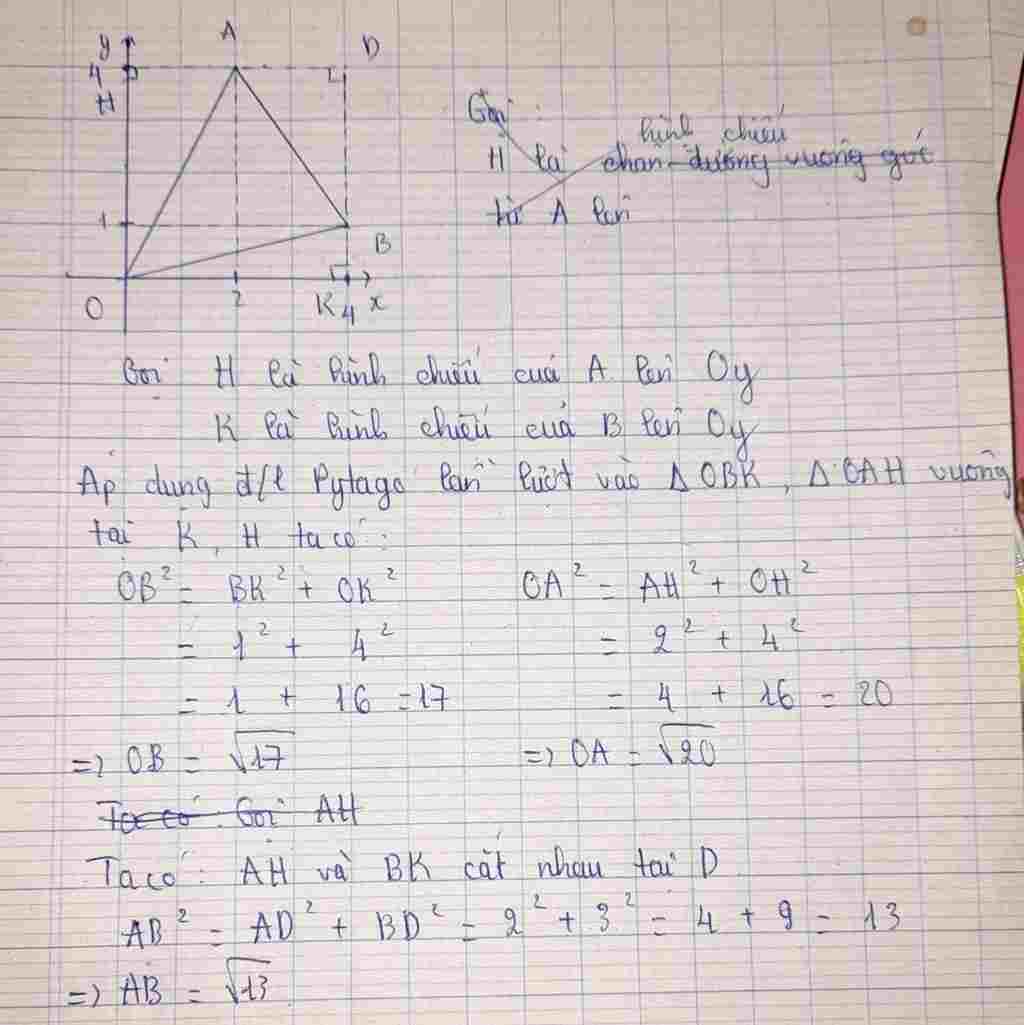 y
A
D
4
H
1
B
O
2
K 4 x
Gọi :
hình chiếu
H là chân đường vuông góc
từ A lên
Gọi H là hình chiếu của A lên Oy
K là hình chiếu của B lên Oy
Áp dụng đ/l Pytago lần lượt vào Δ OBK, Δ OAH vuông
tại K, H ta có :
OB² = BK² + OK²
= 1² + 4²
= 1 + 16 = 17
=> OB = √17
OA² = AH² + OH²
= 2² + 4²
= 4 + 16 = 20
=> OA = √20
Ta có : Gọi AH
Ta có : AH và BK cắt nhau tại D
AB² = AD² + BD² = 2² + 3² = 4 + 9 = 13
=> AB = √13